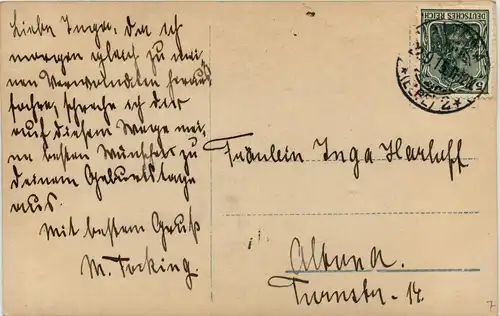 Liebe Inga, da ich
morgen gleich zu mei
nen Verwandten heraus
fahre, spreche ich dir
auf diesem Wege mei,
ne besten Wünsche zu
deinem Geburtstage
aus.
Mit bestem Gruß
M. Focking.
DEUTSCHES REICH
5
Fräulein Inga Harloff
Altona.
Turnstr. 14.
7